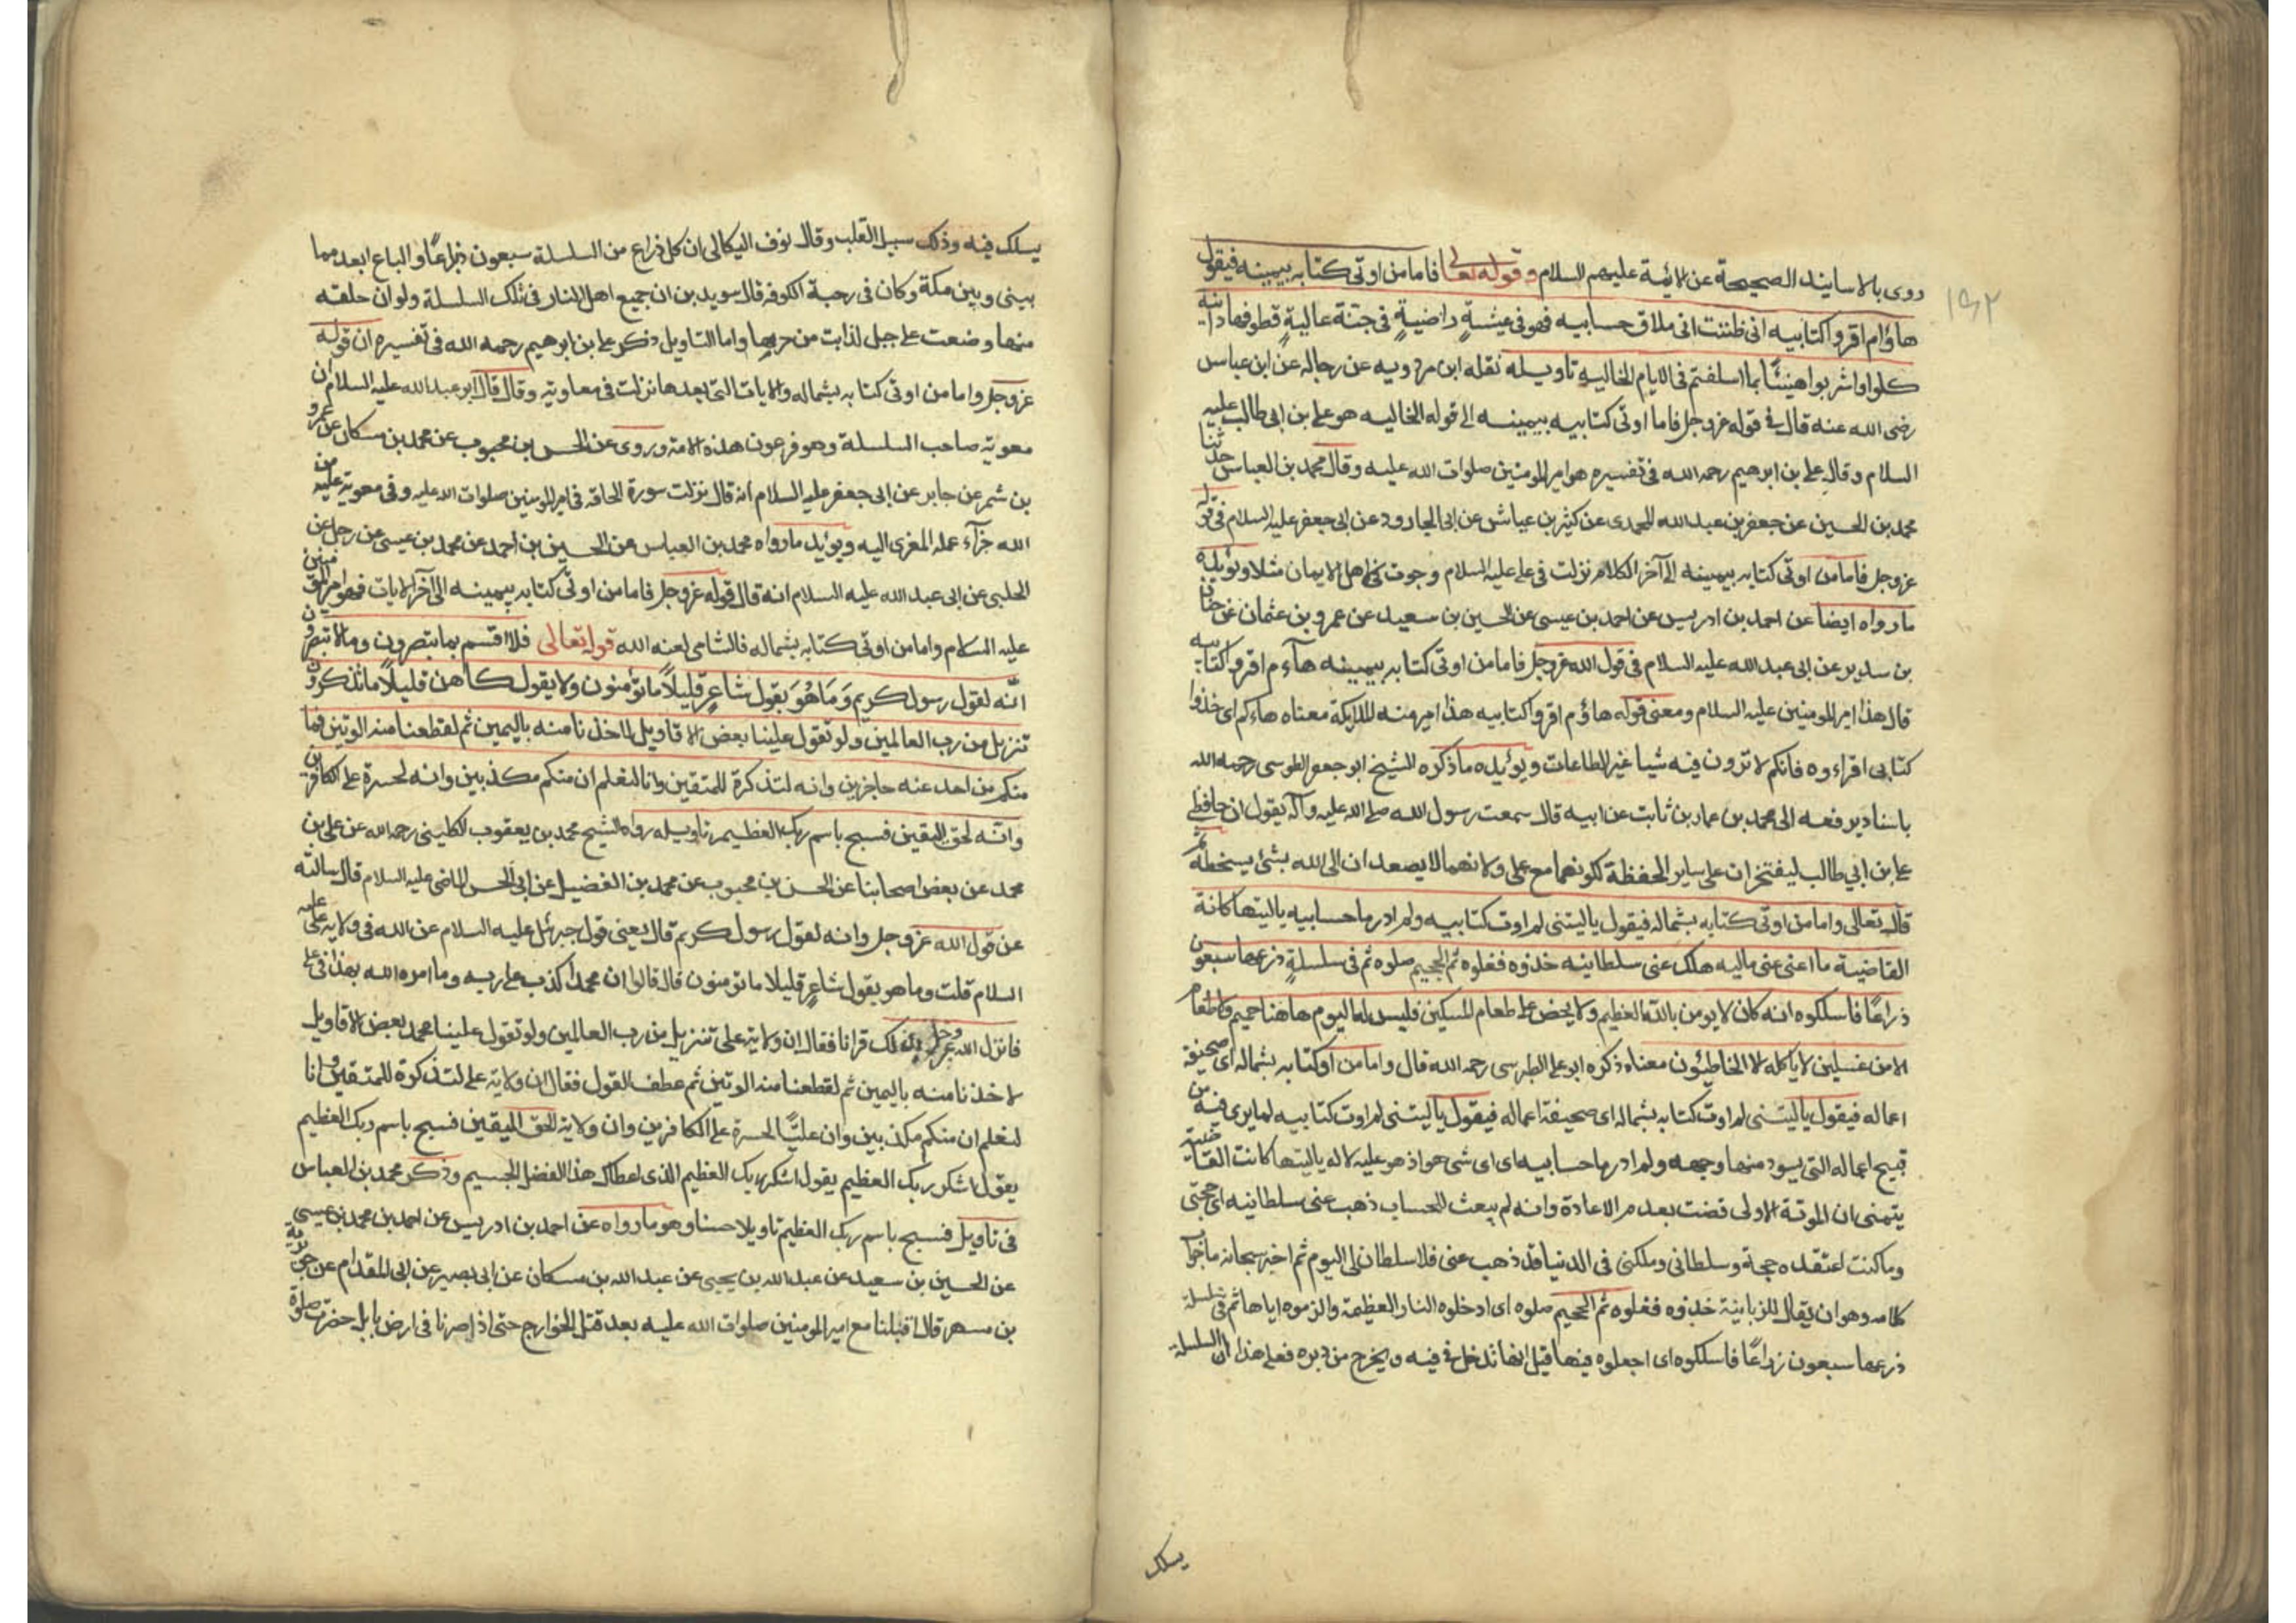 روى بالاسانيد الصحيحة عن الائمة عليهم السلام وقوله تعالى فاما من اوتى كتابه بيمينه فيقول
١٤٢
هاؤم اقرؤا كتابيه انى ظننت انى ملاق حسابيه فهو فى عيشةٍ راضيةٍ فى جنّة عاليةٍ قطوفها دانيه
كلوا واشربوا هنيئًا بما اسلفتم فى الايام الخاليه تاويله نقله ابن مردويه عن رجاله عن ابن عباس
رضى الله عنه قال فى قوله عز وجل فاما اوتى كتابيه بيمينه الى قوله الخاليه هو على بن ابى طالب عليه
السلام وقال على بن ابرهيم رحمه الله فى تفسيره هو امير المومنين صلوات الله عليه وقال محمد بن العباس حدثنا
محمد بن الحسين عن جعفر بن عبد الله المحمدى عن كثير بن عياش عن ابى الجارود عن ابى جعفر عليه السلام فى قوله
عز وجل فاما من اوتى كتابه بيمينه الى آخر الكلام نزلت فى على عليه السلام وجرت فى اهل الايمان مثلا ويؤيده
ما رواه ايضا عن احمد بن ادريس عن احمد بن عيسى عن الحسين بن سعيد عن عمرو بن عثمان عن حنان
بن سدير عن ابى عبد الله عليه السلام فى قول الله عز وجل فاما من اوتى كتابه بيمينه هآءم اقرؤا كتابيه
قال هذا امير المومنين عليه السلام ومعنى قوله هاؤم اقرؤا كتابيه هذا امر منه للملايكة معناه هاءكم اى خذوا
كتابى اقراءوه فانكم لا ترون فيه شيا غير الطاعات ويؤيده ما ذكره الشيخ ابو جعفر الطوسى رحمه الله
باسناد يرفعه الى محمد بن عمار بن ثابت عن ابيه قال سمعت رسول الله صلى الله عليه وآله يقول ان حافظى
على بن ابي طالب ليفتخران على ساير الحفظة لكونهما مع على ولانهما لا يصعدان الى الله بشئ يسخطه ثم
قال تعالى واما من اوتى كتابه بشماله فيقول ياليتنى لم اوت كتابيه ولم ادر ما حسابيه ياليتها كانة
القاضية ما اغنى عنى ماليه هلك عنى سلطانيه خذوه فغلوه ثم الجحيم صلوه ثم فى سلسلةٍ ذرعها سبعون
ذراعًا فاسلكوه انه كان لا يومن بالله العظيم ولا يحض على طعام المسكين فليس له اليوم هاهنا حميم ولا طعام
الا من غسلين لا ياكله الا الخاطئون معناه ذكره ابو على الطبرسى رحمه الله قال واما من اوكتابه بشماله اى صحيفة
اعماله فيقول ياليتنى لم اوت كتابه بشماله اى صحيفة اعماله فيقول ياليتنى لم اوت كتابيه لما يرى فيه من
قبيح اعماله التى يسود منها وجهه ولم ادر ما حسابيه اى اى شى هو اذ هو عليه لا له ياليتها كانت القاضية
يتمنى ان الموتة الاولى قضت بعدم الاعادة وانه لم يبعث للحساب ذهب عنى سلطانيه اى حجتى
وما كنت اعتقده حجة وسلطانى وملكى فى الدنيا قد ذهب عنى فلا سلطان لى اليوم ثم اخبر سبحانه ما جواب
كلامه وهو ان يقال للزبانية خذوه فغلوه ثم الجحيم صلوه اى ادخلوه النار العظيمة والزموه اياها ثم فى سلسلة
ذرعها سبعون ذراعًا فاسلكوه اى اجعلوه فيها قيل انها تدخل فى فيه ويخرج من دبره فعلى هذا ان السلسلة
يسلك
يسلك فيه وذلك سبيل القلب وقال نوف البكالى ان كل ذراع من السلسلة سبعون ذراعًا والباع ابعد مما
بينى وبين مكة وكان فى رحبة الكوفة قال سويد بن ان جميع اهل النار فى تلك السلسلة ولو ان حلقه
منها وضعت على جبل لذابت من حرها واما التاويل ذكر على بن ابرهيم رحمه الله فى تفسيره ان قوله
عز وجل واما من اوتى كتابه بشماله والايات التى بعدها نزلت فى معاوية وقال قال ابو عبد الله عليه السلام ان
معوية صاحب السلسلة وهو فرعون هذه الامة وروى عن الحسن بن محبوب عن محمد بن مسكان عن عمرو
بن شمر عن جابر عن ابى جعفر عليه السلام انه قال نزلت سورة الحاقه فى امير المومنين صلوات الله عليه وفى معوية عليه من
الله جزآء عمله المغرى اليه ويؤيد ما رواه محمد بن العباس عن الحسين بن احمد عن محمد بن عيسى عن رجل عن
الحلبى عن ابى عبد الله عليه السلام انه قال قوله عز وجل فاما من اوتى كتابه بيمينه الى آخر الايات فهو امير المومنين
عليه السلام واما من اوتى كتابه بشماله فالشامى لعنه الله قوله تعالى فلا اقسم بما تبصرون وما لا تبصرون
انّه لقول رسول كريم وَمَا هُوَ بقول شاعر قليلًا ما تؤمنون ولا يقول كاهن قليلًا ما تذكرون
تنزيل من رب العالمين ولو تقول علينا بعض الاقاويل لاخذنا منه باليمين ثم لقطعنا منه الوتين فما
منكم من احد عنه حاجزين وانه لتذكرة للمتقين وانا لنعلم ان منكم مكذبين وانه لحسرة على الكافرين
وانّه لحق اليقين فسبح باسم ربك العظيم تاويله رواه الشيخ محمد بن يعقوب الكلينى رحمه الله عن على بن
محمد عن بعض اصحابنا عن الحسن بن محبوب عن محمد بن الفضيل عن ابى الحسن الماضى عليه السلام قال سالته
عن قول الله عز وجل وانه لقول رسول كريم قال يعنى قول جبرئل عليه السلام عن الله فى ولاية على عليه
السلام قلت وما هو بقول شاعرٍ قليلا ما تومنون قال قالوا ان محمدا كذب على ربه وما امره الله بهذا فى على
فانزل الله عز وجل بذلك قرانا فقال ان ولاية على تنزيل من رب العالمين ولو تقول علينا محمد بعض الاقاويل
لاخذنا منه باليمين ثم لقطعنا منه الوتين ثم عطف القول فقال ان ولاية على لتذكرة للمتقين وانا
لنعلم ان منكم مكذبين وان عليًّا لحسرة على الكافرين وان ولاية للحق اليقين فسبح باسم ربك العظيم
يقول اشكر ربك العظيم يقول اشكر ربك العظيم الذى اعطاك هذا الفضل الجسيم وذكر محمد بن العباس
فى تاويل فسبح باسم ربك العظيم تاويلا حسنا وهو ما رواه عن احمد بن ادريس عن احمد بن محمد بن عيسى
عن الحسين بن سعيد عن عبد الله بن يحيى عن عبد الله بن مسكان عن ابى بصير عن ابى المقدام عن جويرية
بن مسهر قال اقبلنا مع امير المومنين صلوات الله عليه بعد قتل الخوارج حتى اذا صرنا فى ارض بابل حضرت صلوة